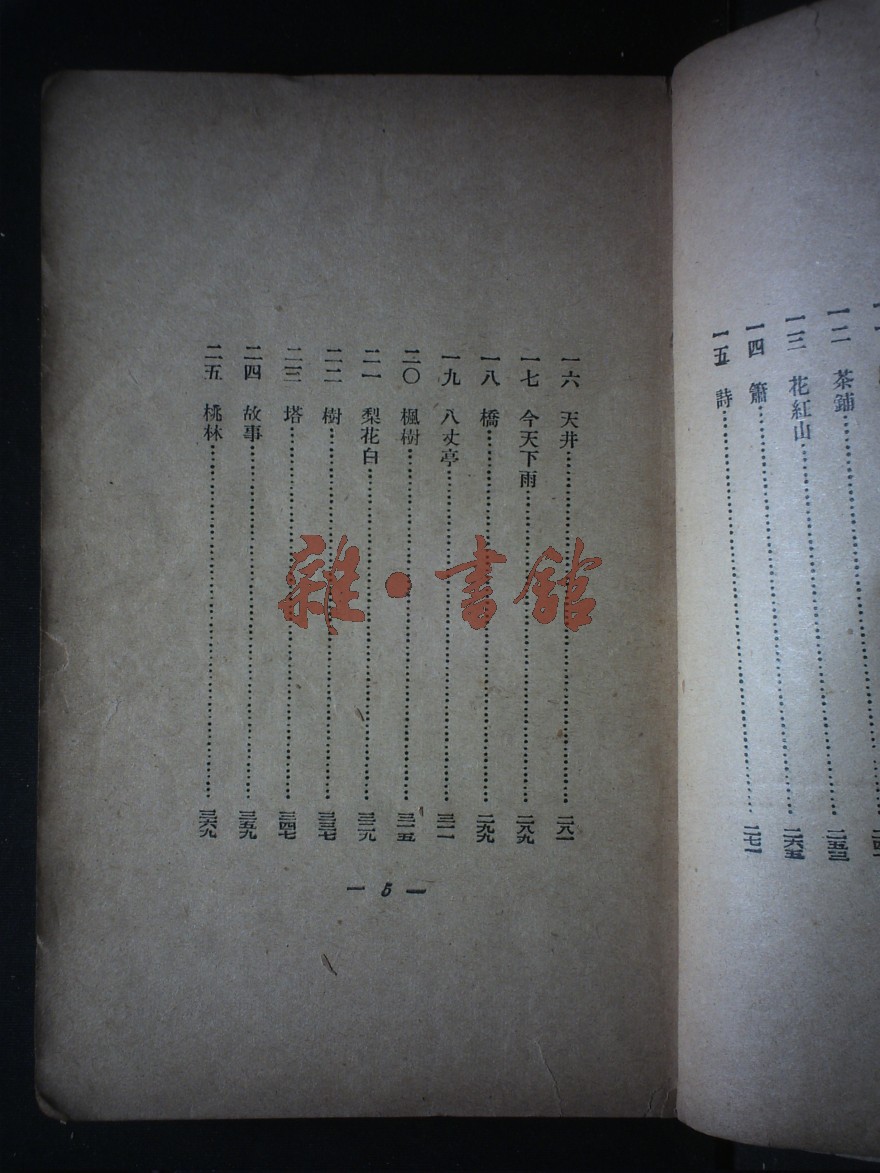 一二 茶鋪
一三 花紅山……二五三
一四 簫……二六五
一五 詩……二七一
一六 天井……二八一
一七 今天下雨……二八九
一八 橋……二九九
一九 八丈亭……三一一
二〇 楓樹……三一五
二一 梨花白……三二九
二二 樹……三三七
二三 塔……三四七
二四 故事……三五九
二五 桃林……三六九
— 5 —
雜·書館